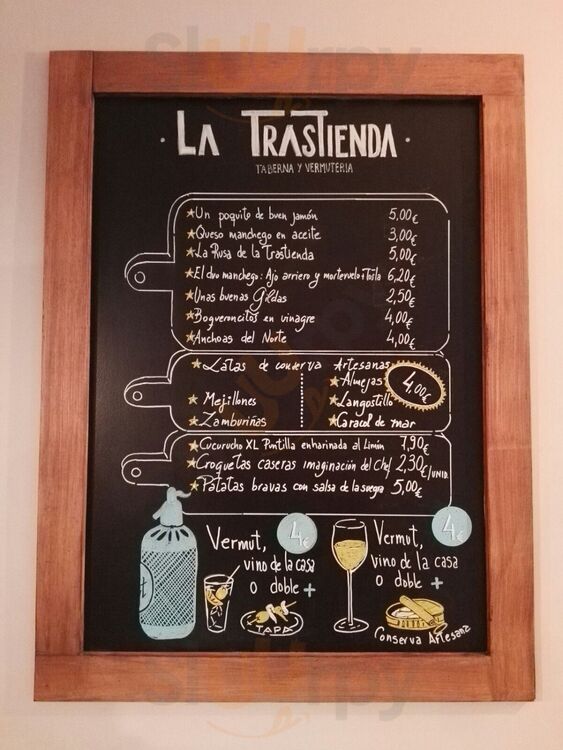 LA TRASTIENDA
TABERNA Y VERMUTERIA
Un poquito de buen jamón 5,00€
Queso manchego en aceite 3,00€
La Rusa de la Trastienda 5,00€
El duo manchego: Ajo arriero y morteruelo+Tosta 6,20€
Unas buenas Gildas 2,50€
Boqueroncitos en vinagre 4,00€
Anchoas del Norte 4,00€
Latas de conserva Artesanas
Almejas
4,00€
Mejillones Langostillo
Zamburiñas Caracol de mar
Cucurucho XL Puntilla enharinada al Limón 7,90€
Croquetas caseras imaginación del Chef 2,30€/UNID
Patatas bravas con salsa de la suegra 5,00€
Vermut, 4€
vino de la casa
o doble +
TAPA
Vermut, 4€
vino de la casa
o doble +
Conserva Artesana
Slurpy